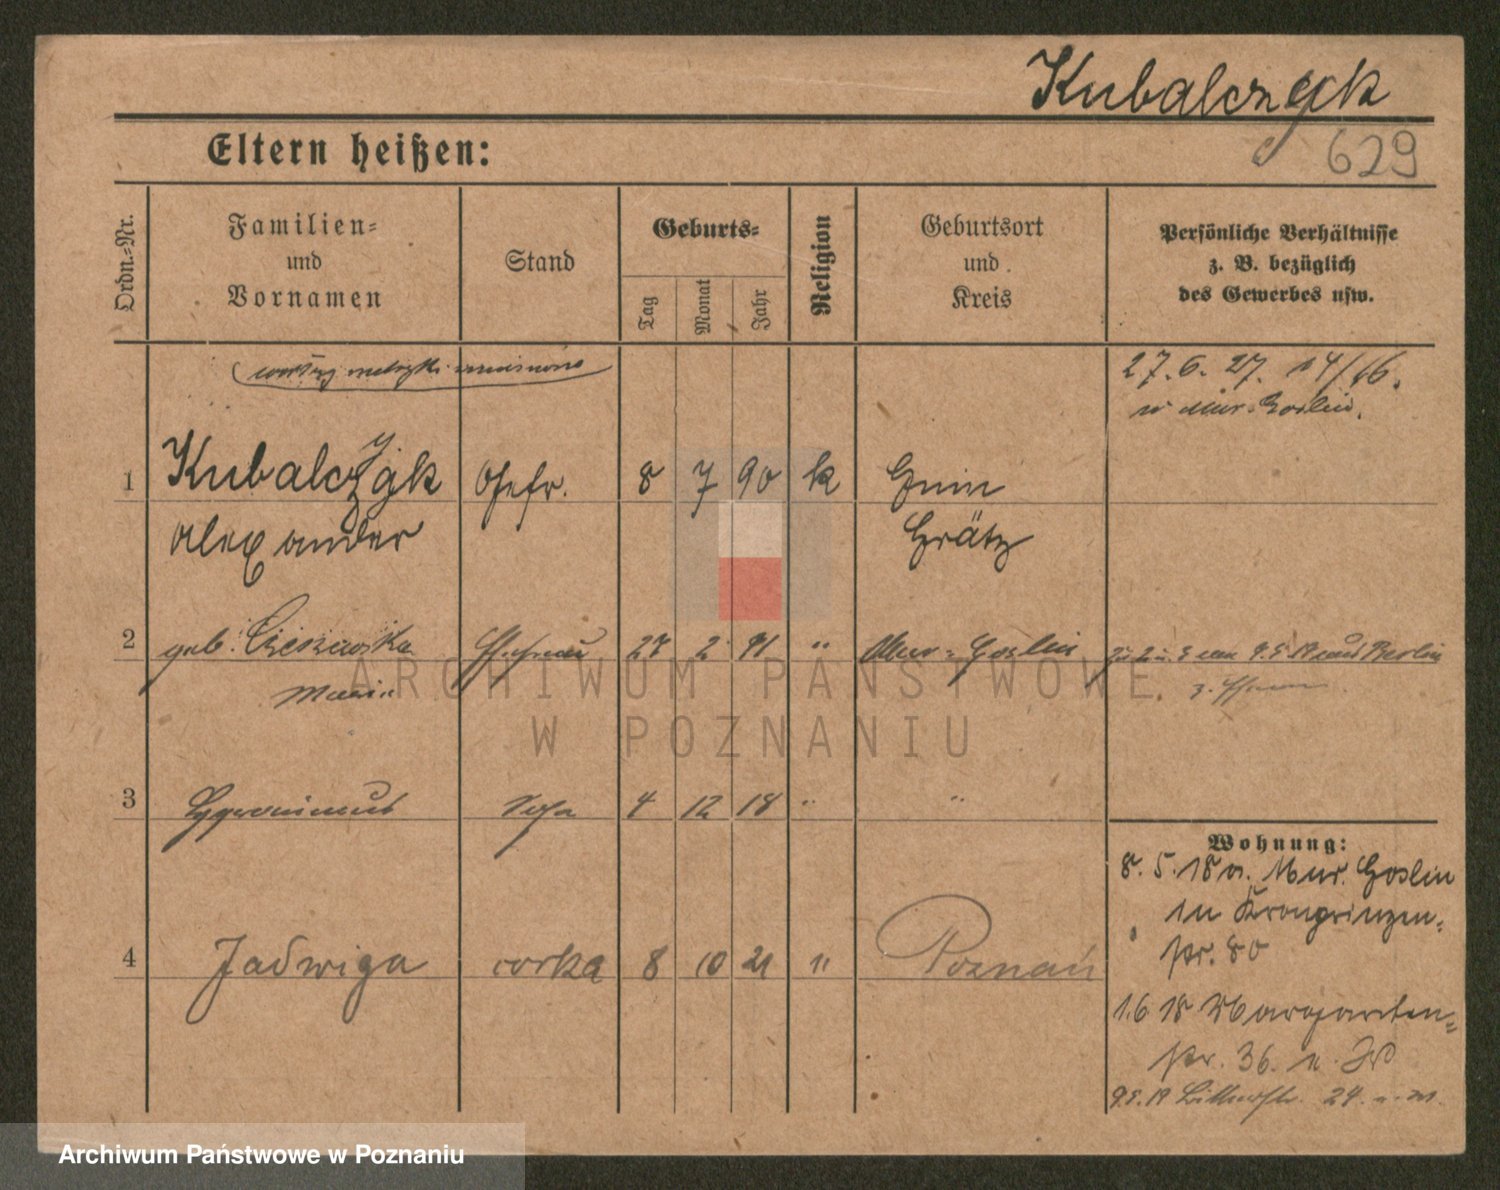 Kubalczyk
629
Eltern heißen:
Ordn.-Nr.
Familien- und Vornamen
Stand
Geburts-
Tag
Monat
Jahr
Religion
Geburtsort und Kreis
Persönliche Verhältnisse z. B. bezüglich des Gewerbes usw.
27. 6. 27. 14/16.
w Mur. Goslin.
1 Kubalczyk 8 7 90 k
Alexander Grätz
2 geb. Cieszewska Ehefrau 27 2 91 " Mur-Goslin
Maria
3 Hyeronimus 4 12 18 " "
4 Jadwiga corka 8 10 21 " Poznań
Wohnung:
8. 5. 18 a. Mur. Goslin
in Kronprinzen-
str. 80
1.6 18 Margareten-
str. 36.
24
ARCHIWUM PAŃSTWOWE
W POZNANIU
Archiwum Państwowe w Poznaniu